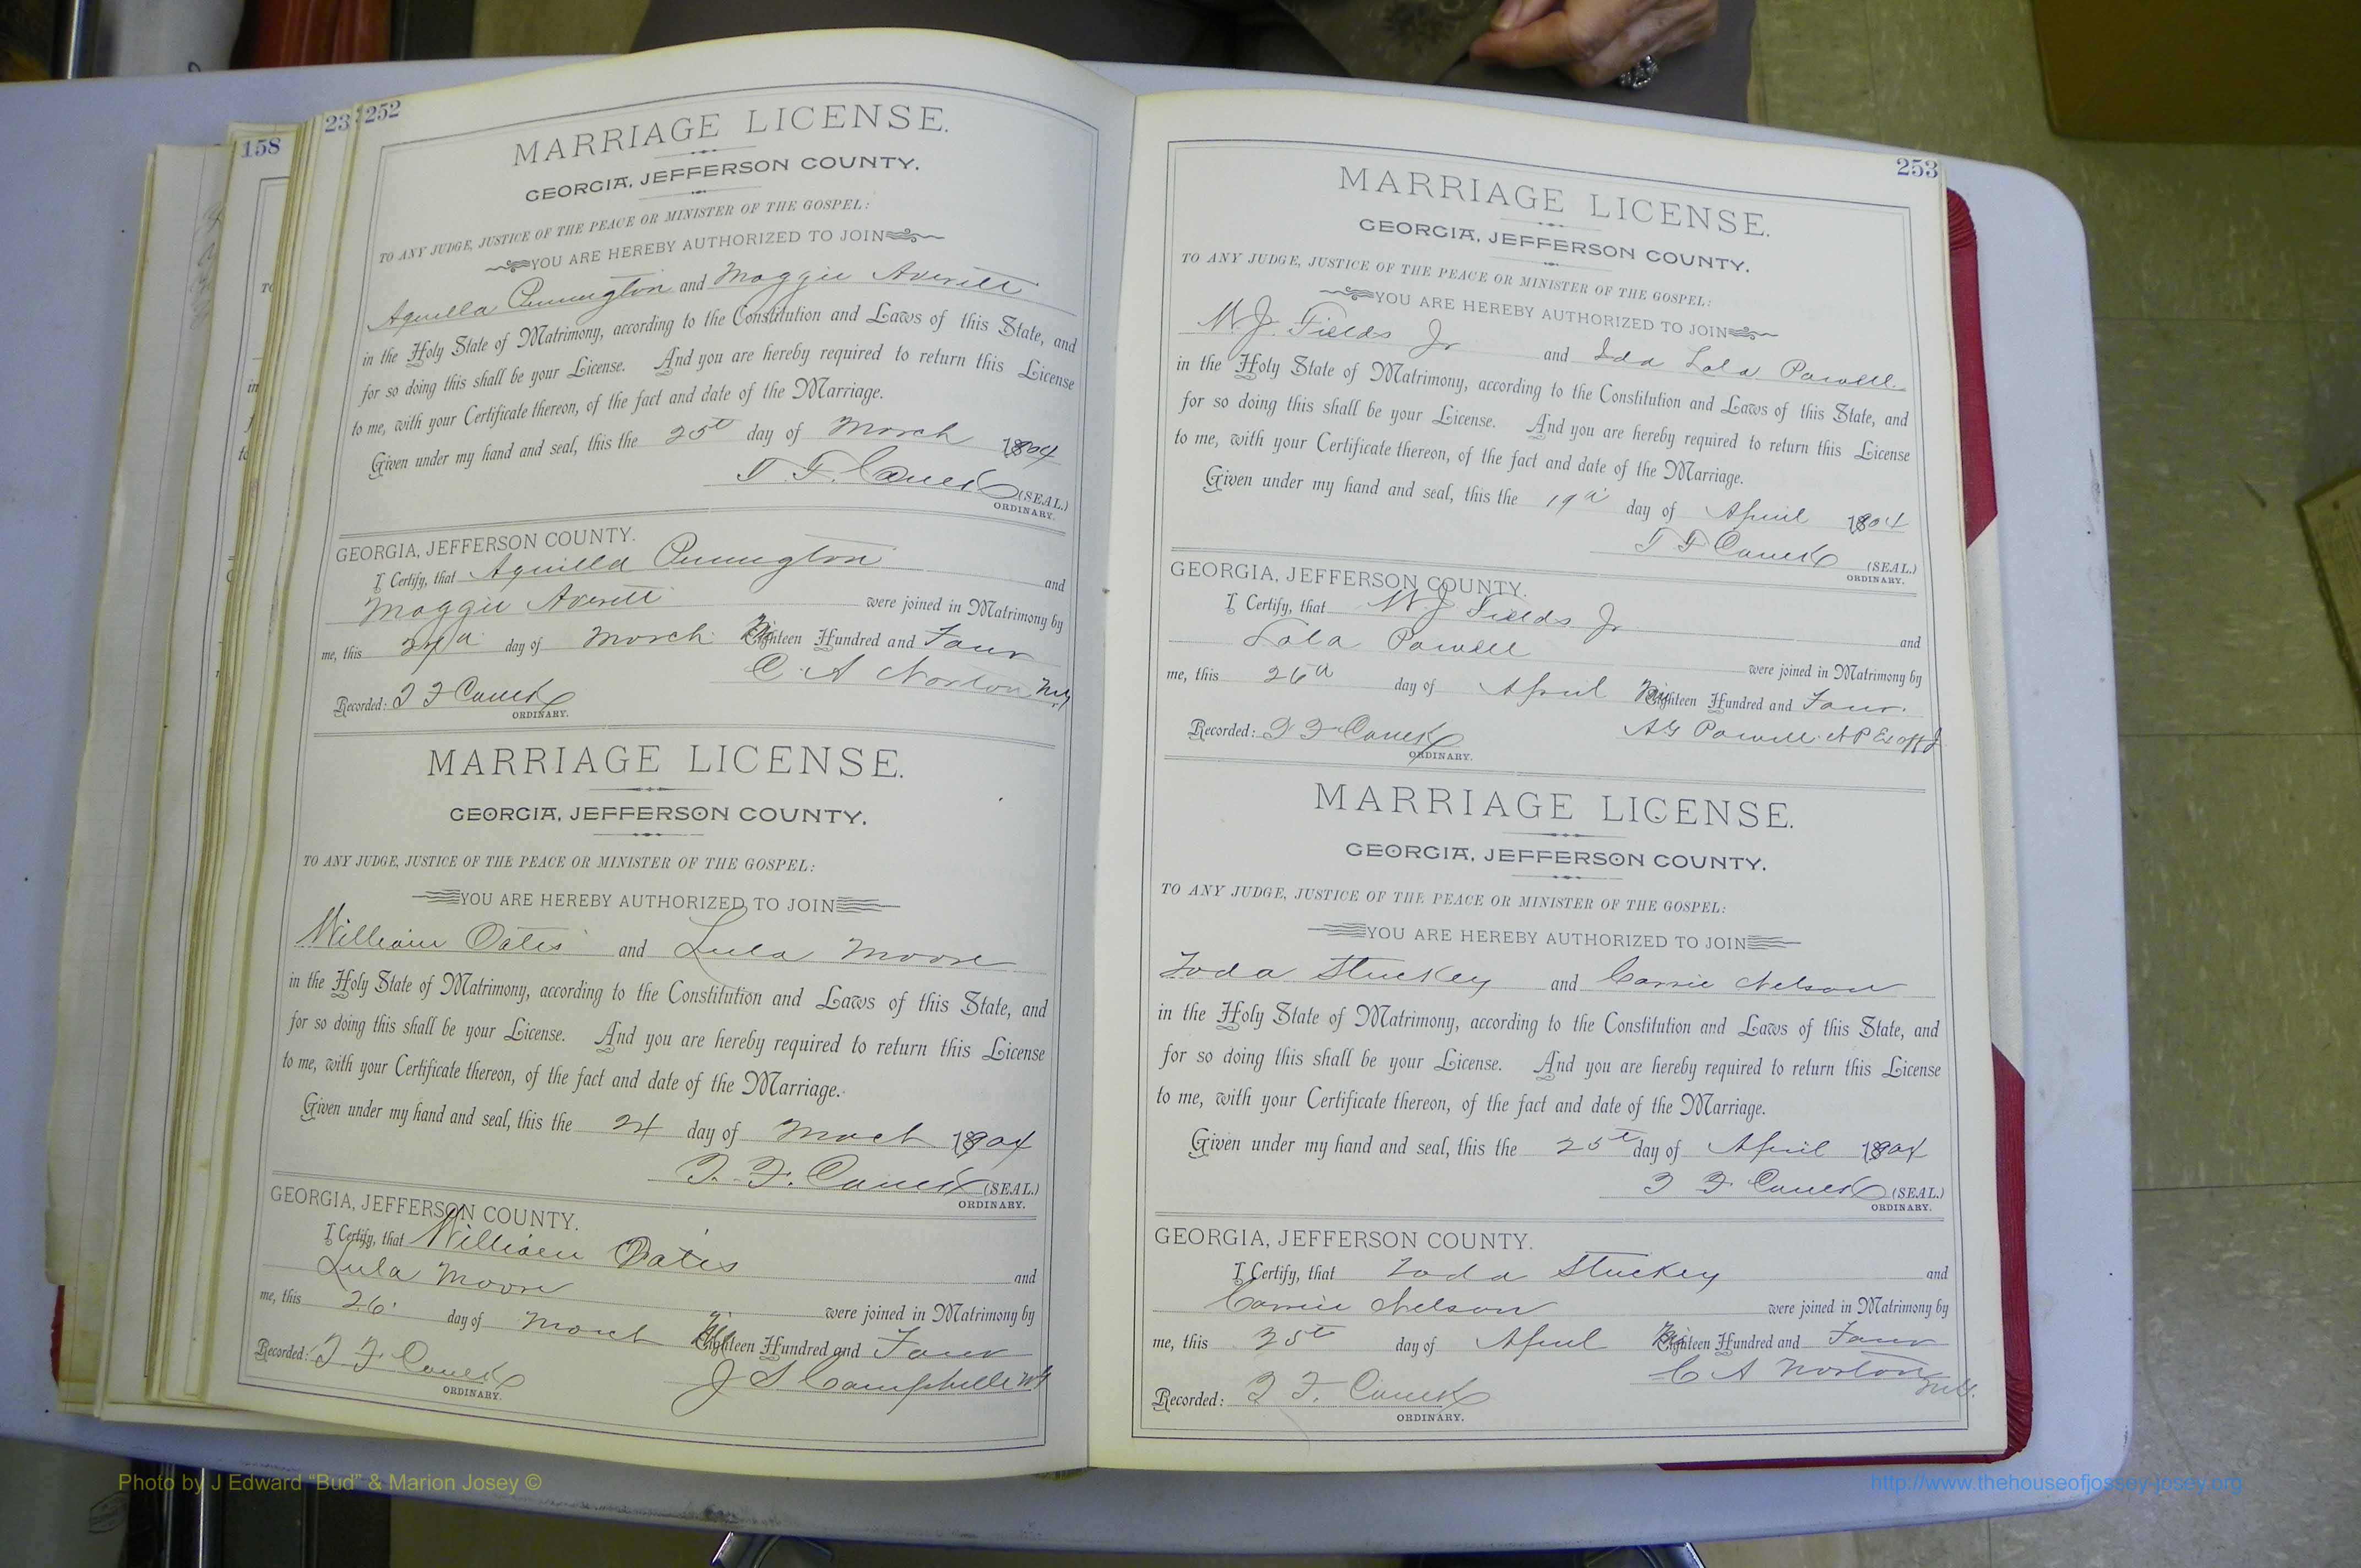 158
23
252
MARRIAGE LICENSE.
GEORGIA, JEFFERSON COUNTY.
TO ANY JUDGE, JUSTICE OF THE PEACE OR MINISTER OF THE GOSPEL:
YOU ARE HEREBY AUTHORIZED TO JOIN
Aquilla Pennington and Maggie Averett
in the Holy State of Matrimony, according to the Constitution and Laws of this State, and
for so doing this shall be your License. And you are hereby required to return this License
to me, with your Certificate thereon, of the fact and date of the Marriage.
Given under my hand and seal, this the 25th day of March 1904
(SEAL.)
ORDINARY.
GEORGIA, JEFFERSON COUNTY.
I Certify, that Aquilla Pennington and
Maggie Averett were joined in Matrimony by
me, this day of March Hundred and Four
C. A Norton
Recorded:
ORDINARY.
MARRIAGE LICENSE.
GEORGIA, JEFFERSON COUNTY.
TO ANY JUDGE, JUSTICE OF THE PEACE OR MINISTER OF THE GOSPEL:
YOU ARE HEREBY AUTHORIZED TO JOIN
William Oates and Lula Moore
in the Holy State of Matrimony, according to the Constitution and Laws of this State, and
for so doing this shall be your License. And you are hereby required to return this License
to me, with your Certificate thereon, of the fact and date of the Marriage.
Given under my hand and seal, this the 24 day of March 1904
(SEAL.)
ORDINARY.
GEORGIA, JEFFERSON COUNTY.
I Certify, that William Oates
Lula Moore and
were joined in Matrimony by
me, this 26 day of March Hundred and Four
J S Campbell
Recorded:
ORDINARY.
253
MARRIAGE LICENSE.
GEORGIA, JEFFERSON COUNTY.
TO ANY JUDGE, JUSTICE OF THE PEACE OR MINISTER OF THE GOSPEL:
YOU ARE HEREBY AUTHORIZED TO JOIN
W. J. Fields Jr and Ida Lola Powell.
in the Holy State of Matrimony, according to the Constitution and Laws of this State, and
for so doing this shall be your License. And you are hereby required to return this License
to me, with your Certificate thereon, of the fact and date of the Marriage.
Given under my hand and seal, this the 19th day of April 1904
(SEAL.)
ORDINARY.
GEORGIA, JEFFERSON COUNTY.
I Certify, that W J Fields Jr
Lola Powell and
were joined in Matrimony by
me, this 26th day of April Hundred and Four.
A G Powell N P Ex off J
Recorded:
ORDINARY.
MARRIAGE LICENSE.
GEORGIA, JEFFERSON COUNTY.
TO ANY JUDGE, JUSTICE OF THE PEACE OR MINISTER OF THE GOSPEL:
YOU ARE HEREBY AUTHORIZED TO JOIN
Stuckey and Carrie Nelson
in the Holy State of Matrimony, according to the Constitution and Laws of this State, and
for so doing this shall be your License. And you are hereby required to return this License
to me, with your Certificate thereon, of the fact and date of the Marriage.
Given under my hand and seal, this the 25th day of April 1904
(SEAL.)
ORDINARY.
GEORGIA, JEFFERSON COUNTY.
I Certify, that Stuckey and
Carrie Nelson were joined in Matrimony by
me, this 25th day of April Hundred and Four
C A Norton
Recorded:
ORDINARY.
Photo by J Edward "Bud" & Marion Josey ©
http://www.thehouseofjossey-josey.org